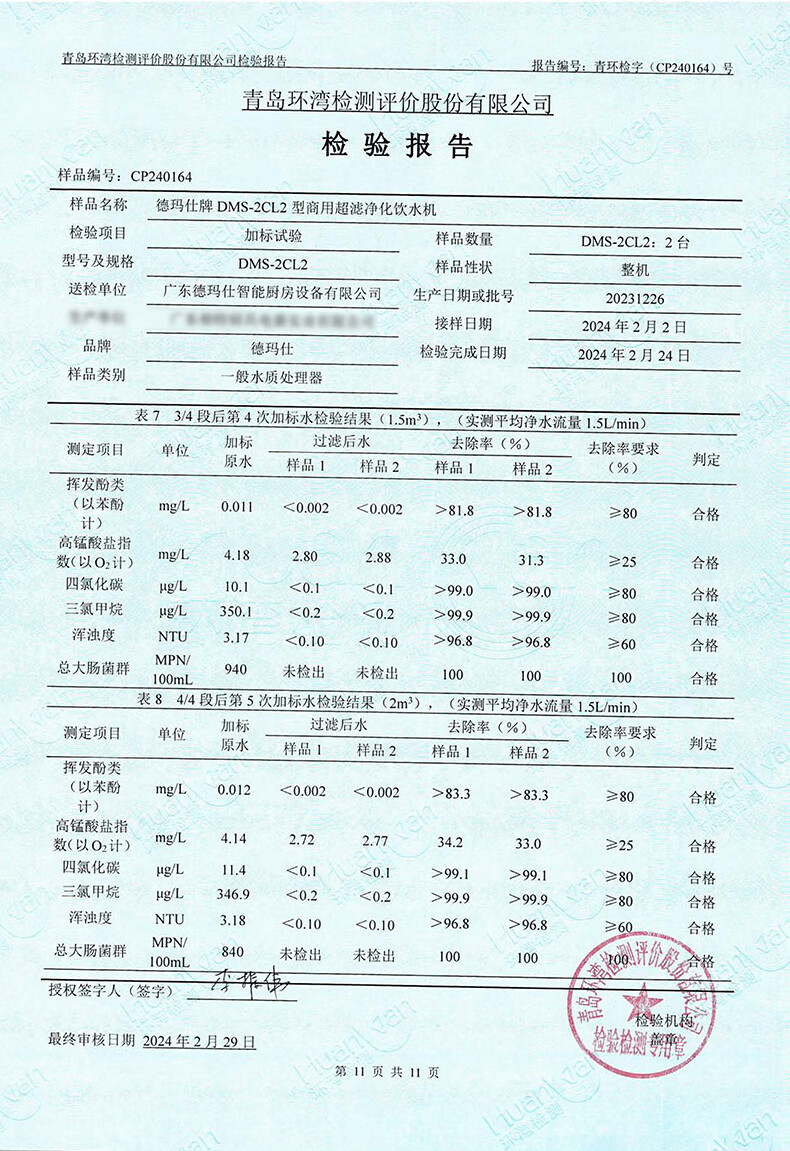 青岛环湾检测评价股份有限公司检验报告
报告编号：青环检字（CP240164）号
青岛环湾检测评价股份有限公司
检 验 报 告
样品编号：CP240164
样品名称 德玛仕牌 DMS-2CL2 型商用超滤净化饮水机
检验项目 加标试验 样品数量 DMS-2CL2：2 台
型号及规格 DMS-2CL2 样品性状 整机
送检单位 广东德玛仕智能厨房设备有限公司 生产日期或批号 20231226
接样日期 2024 年 2 月 2 日
品牌 德玛仕 检验完成日期 2024 年 2 月 24 日
样品类别 一般水质处理器
表 7 3/4 段后第 4 次加标水检验结果（1.5m³），（实测平均净水流量 1.5L/min）
测定项目 单位 加标原水 过滤后水 去除率（%） 去除率要求（%） 判定
样品 1 样品 2 样品 1 样品 2
挥发酚类（以苯酚计） mg/L 0.011 ＜0.002 ＜0.002 ＞81.8 ＞81.8 ≥80 合格
高锰酸盐指数（以 O₂ 计） mg/L 4.18 2.80 2.88 33.0 31.3 ≥25 合格
四氯化碳 μg/L 10.1 ＜0.1 ＜0.1 ＞99.0 ＞99.0 ≥80 合格
三氯甲烷 μg/L 350.1 ＜0.2 ＜0.2 ＞99.9 ＞99.9 ≥80 合格
浑浊度 NTU 3.17 ＜0.10 ＜0.10 ＞96.8 ＞96.8 ≥60 合格
总大肠菌群 MPN/100mL 940 未检出 未检出 100 100 100 合格
表 8 4/4 段后第 5 次加标水检验结果（2m³），（实测平均净水流量 1.5L/min）
测定项目 单位 加标原水 过滤后水 去除率（%） 去除率要求（%） 判定
样品 1 样品 2 样品 1 样品 2
挥发酚类（以苯酚计） mg/L 0.012 ＜0.002 ＜0.002 ＞83.3 ＞83.3 ≥80 合格
高锰酸盐指数（以 O₂ 计） mg/L 4.14 2.72 2.77 34.2 33.0 ≥25 合格
四氯化碳 μg/L 11.4 ＜0.1 ＜0.1 ＞99.1 ＞99.1 ≥80 合格
三氯甲烷 μg/L 346.9 ＜0.2 ＜0.2 ＞99.9 ＞99.9 ≥80 合格
浑浊度 NTU 3.18 ＜0.10 ＜0.10 ＞96.8 ＞96.8 ≥60 合格
总大肠菌群 MPN/100mL 840 未检出 未检出 100 100 100 合格
授权签字人（签字） 李振伟
检验机构
盖章
青岛环湾检测评价股份有限公司
检验检测专用章
最终审核日期 2024 年 2 月 29 日
第 11 页 共 11 页